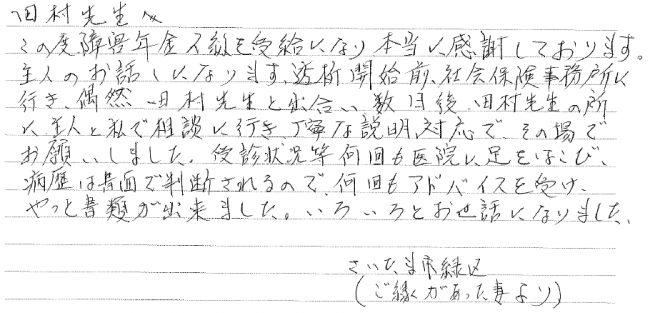 田村先生へ
この度障害年金2級を受給になり本当に感謝しております。
主人のお話しになります、透析開始前、社会保険事務所に
行き、偶然田村先生と出会い、数日後田村先生の所
に主人と私で相談に行き、丁寧な説明、対応で、その場で
お願いしました。受診状況等何回も医院に足をはこび、
病歴は書面で判断されるので、何回もアドバイスを受け、
やっと書類が出来ました。いろいろとお世話になりました、
さいたま市緑区
(ご縁があった妻より)